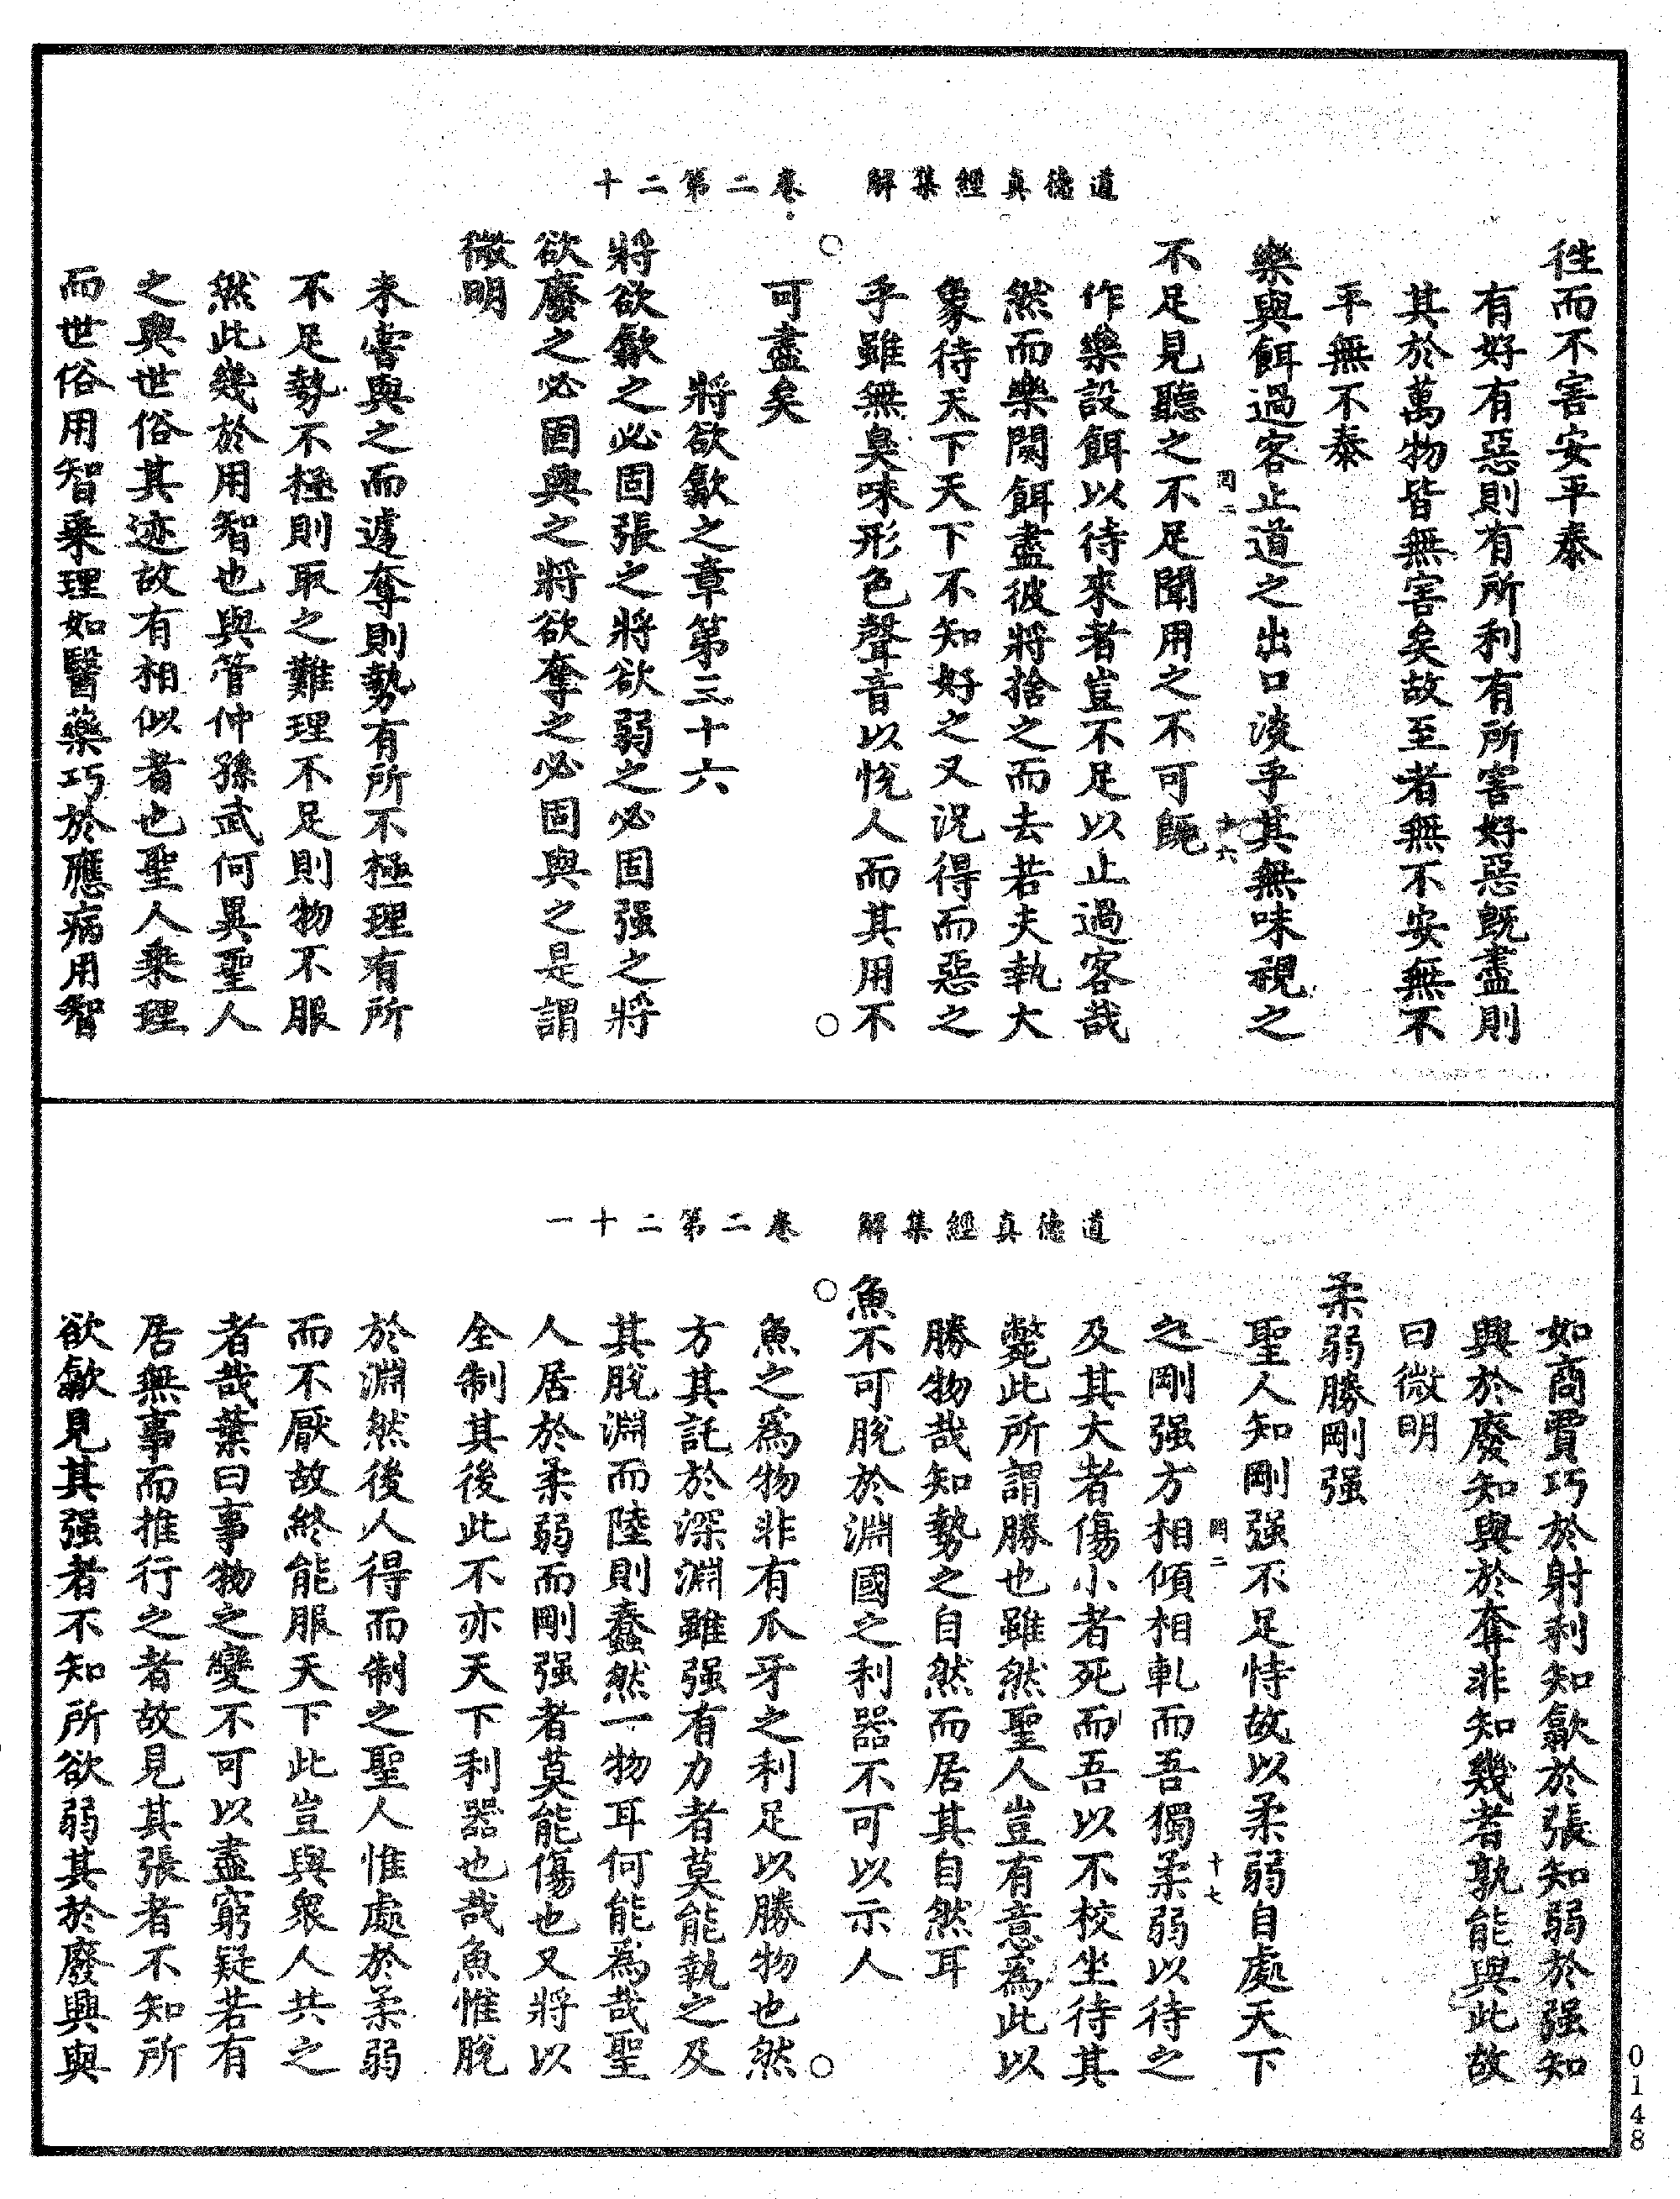 道德真經集解　卷二第二十
往而不害安平泰
有好有惡則有所利有所害好惡旣盡則
其於萬物皆無害矣故至者無不安無不
平無不泰
樂與餌過客止道之出口淡乎其無味視之
不足見聽之不足聞用之不可旣
作樂設餌以待來者豈不足以止過客哉
然而樂闋餌盡彼將捨之而去若夫執大
象待天下天下不知好之又況得而惡之
乎雖無臭味形色聲音以悅人而其用不
可盡矣
將欲歙之章第三十六
將欲歙之必固張之將欲弱之必固强之將
欲廢之必固興之將欲奪之必固與之是謂
微明
未嘗與之而遽奪則勢有所不極理有所
不足勢不極則取之難理不足則物不服
然此幾於用智也與管仲孫武何異聖人
之與世俗其迹故有相似者也聖人乘理
而世俗用智乘理如醫藥巧於應病用智
道德真經集解　卷二第二十一
如商賈巧於射利知歙於張知弱於强知
興於廢知與於奪非知幾者孰能與此故
曰微明
柔弱勝剛强
聖人知剛强不足恃故以柔弱自處天下
之剛强方相傾相軋而吾獨柔弱以待之
及其大者傷小者死而吾以不校坐待其
斃此所謂勝也雖然聖人豈有意為此以
勝物哉知勢之自然而居其自然耳
魚不可脫於淵國之利器不可以示人
魚之爲物非有爪牙之利足以勝物也然
方其託於深淵雖强有力者莫能執之及
其脫淵而陸則蠢然一物耳何能為哉聖
人居於柔弱而剛强者莫能傷也又將以
全制其後此不亦天下利器也哉魚惟脫
於淵然後人得而制之聖人惟處於柔弱
而不厭故終能服天下此豈與衆人共之
者哉葉曰事物之變不可以盡窮疑若有
居無事而推行之者故見其張者不知所
欲歙見其强者不知所欲弱其於廢興與
0148